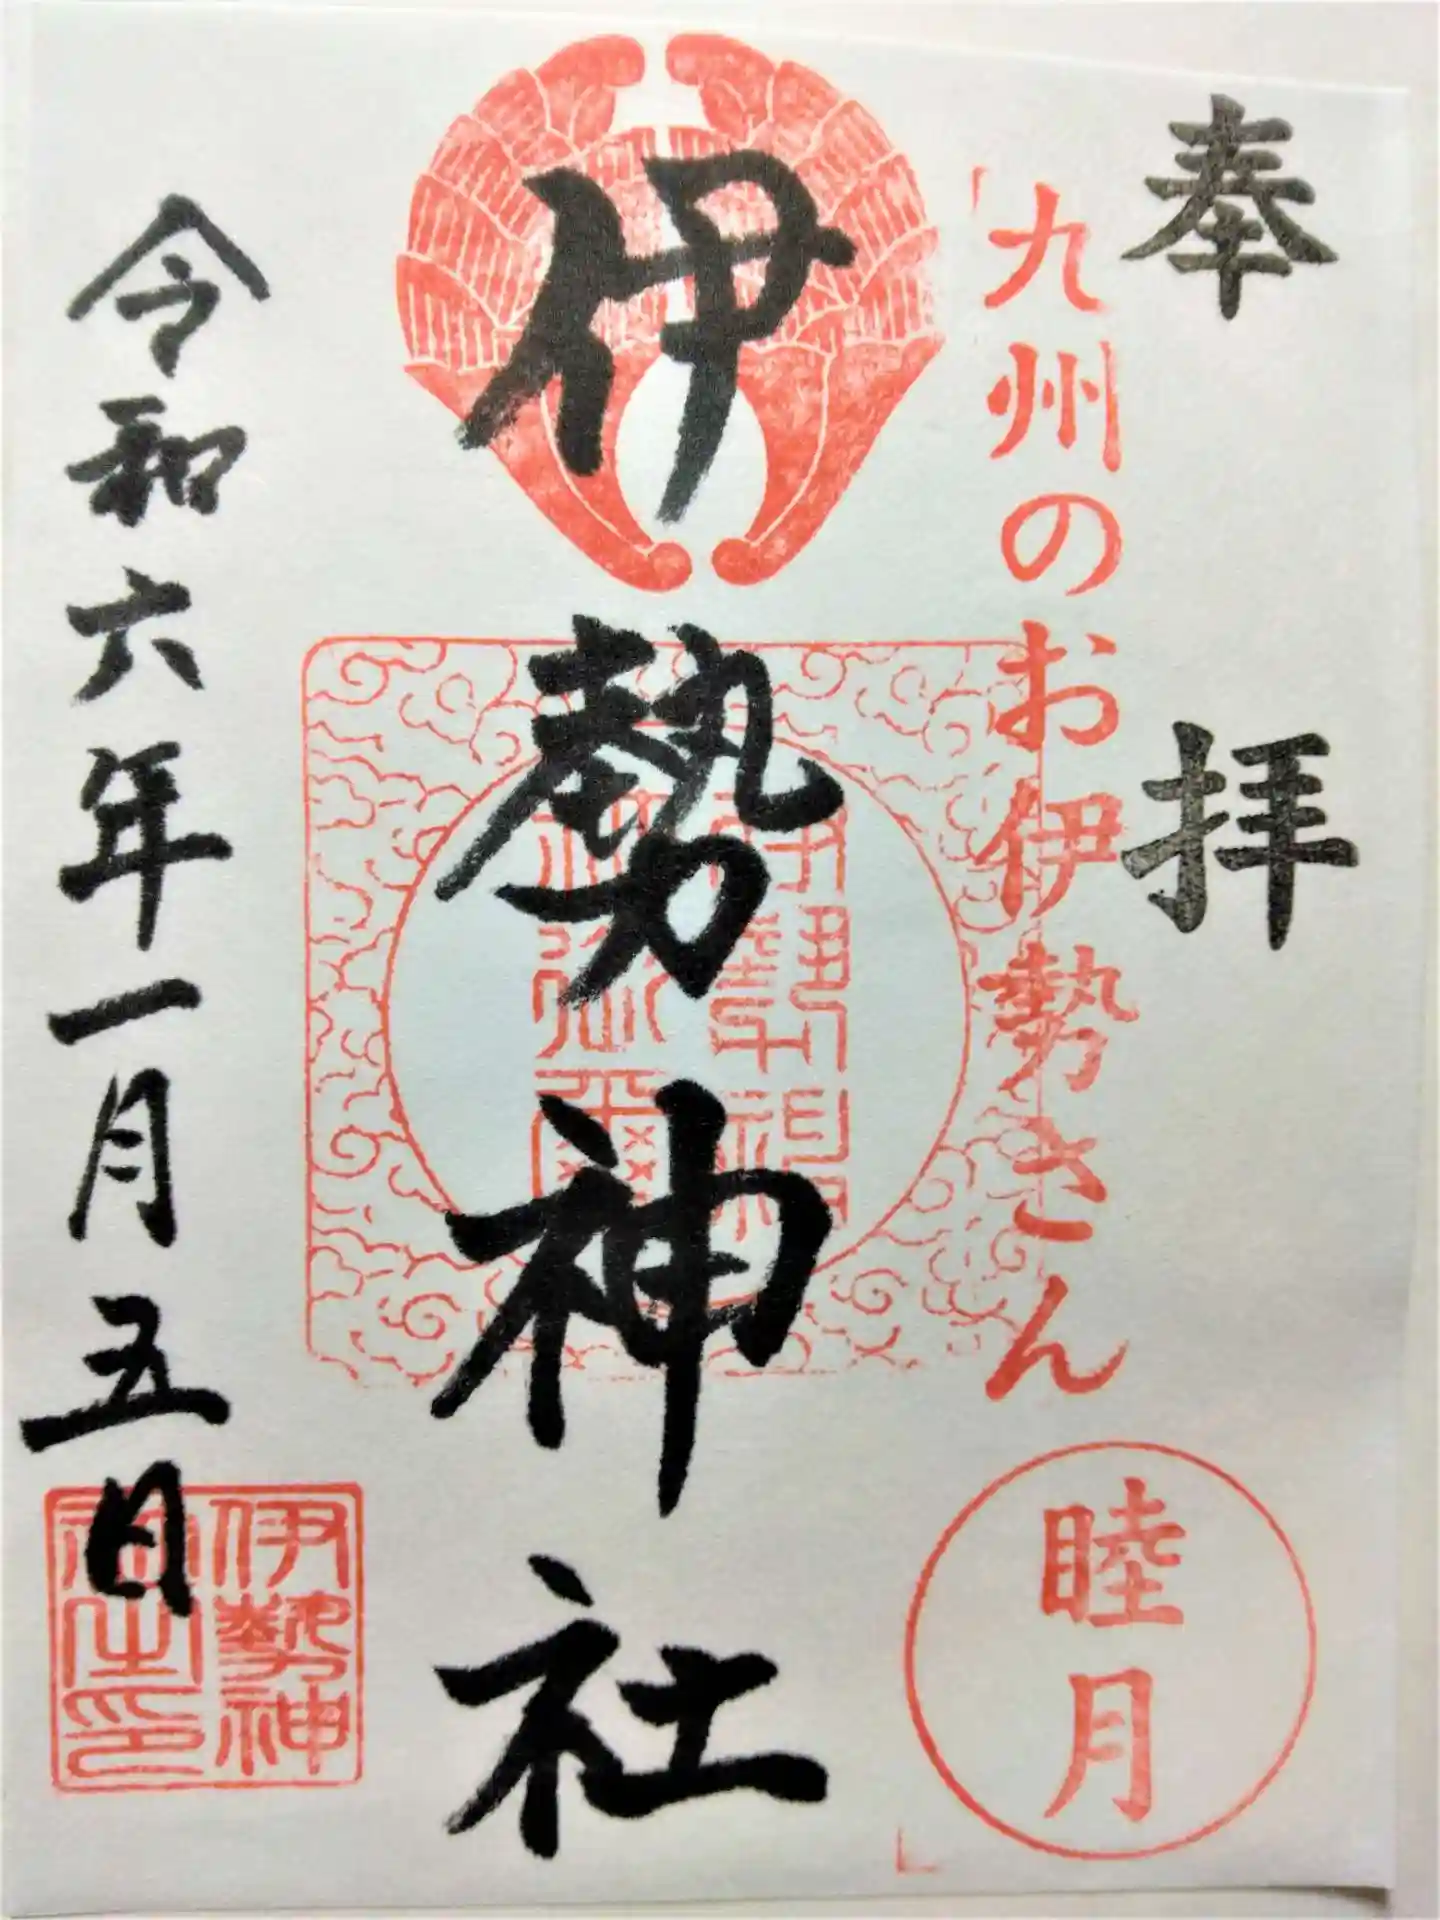 奉拝
九州のお伊勢さん
睦月
伊勢神社
令和六年一月五日
伊勢神
社之印